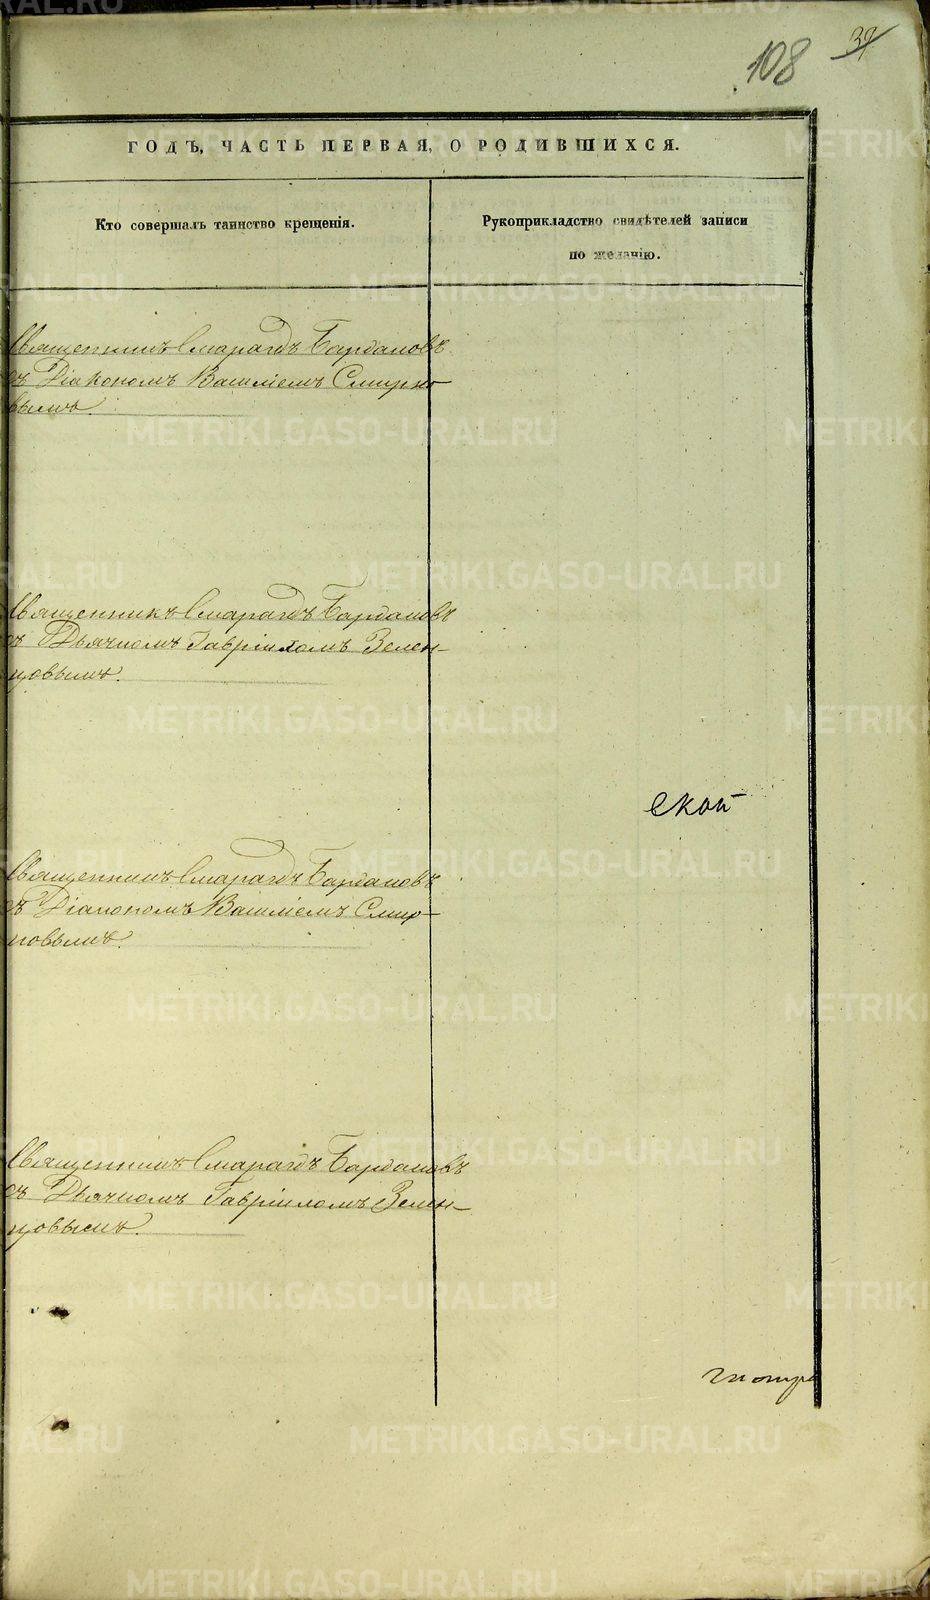 108
39
ГОДЪ, ЧАСТЬ ПЕРВАЯ, О РОДИВШИХСЯ.
Кто совершалъ таинство крещенія.
Рукоприкладство свидѣтелей записи
по желанію.
Священникъ Смарагдъ Бардановъ
съ Діакономъ Василіемъ Смирно
вымъ.
Священникъ Смарагдъ Бардановъ
съ Дьячкомъ Гавріиломъ Зелен-
цовымъ.
ской
Священникъ Смарагдъ Бардановъ
съ Діакономъ Василіемъ Смир-
новымъ.
Священникъ Смарагдъ Бардановъ
съ Дьячкомъ Гавріиломъ Зелен-
цовымъ.
METRIKI.GASO-URAL.RU